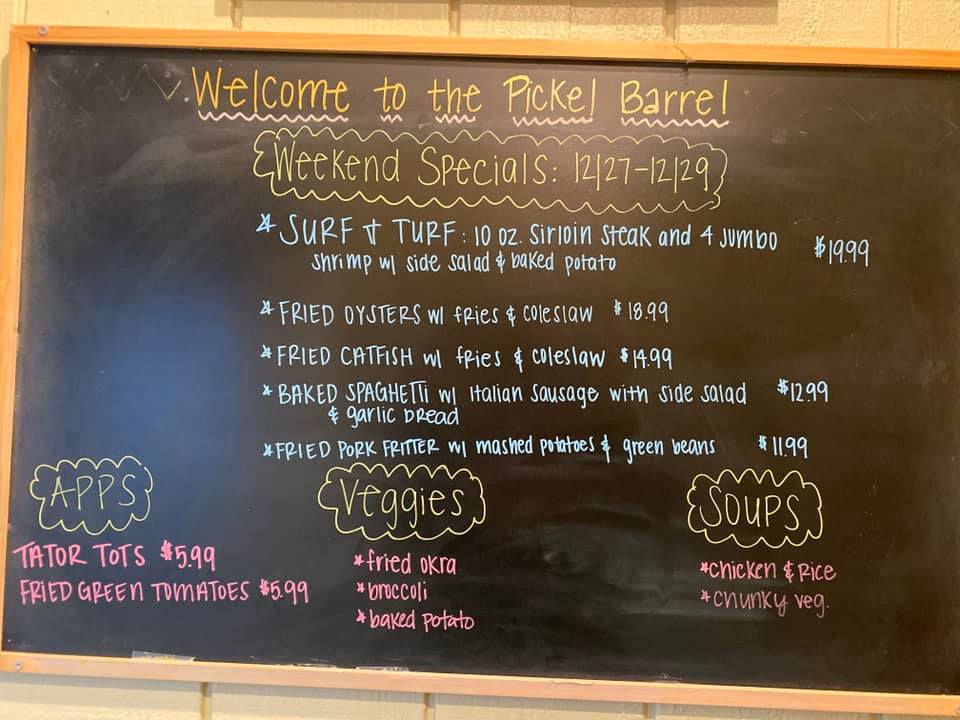 Welcome to the Pickel Barrel
Weekend Specials: 12/27-12/29
* SURF & TURF: 10 oz. Sirloin Steak and 4 Jumbo $19.99
shrimp w/ side salad & baked potato
* FRIED OYSTERS w/ fries & coleslaw $18.99
* FRIED CATFISH w/ fries & coleslaw $14.99
* BAKED SPAGHETTI w/ Italian sausage with side salad $12.99
& garlic bread
* FRIED PORK FRITTER w/ mashed potatoes & green beans $11.99
APPS
TATOR TOTS $5.99
FRIED GREEN TOMATOES $5.99
Veggies
* fried okra
* broccoli
* baked potato
SOUPS
* chicken & Rice
* chunky veg.